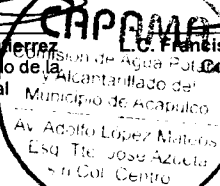 CAPAMA
tierrez L.C. Francis
Comisión de Agua Potable
o de la
y Alcantarillado del
al
Municipio de Acapulco
Av. Adolfo López Mateos
Esq. Tte. José Azueta
s/n Col. Centro